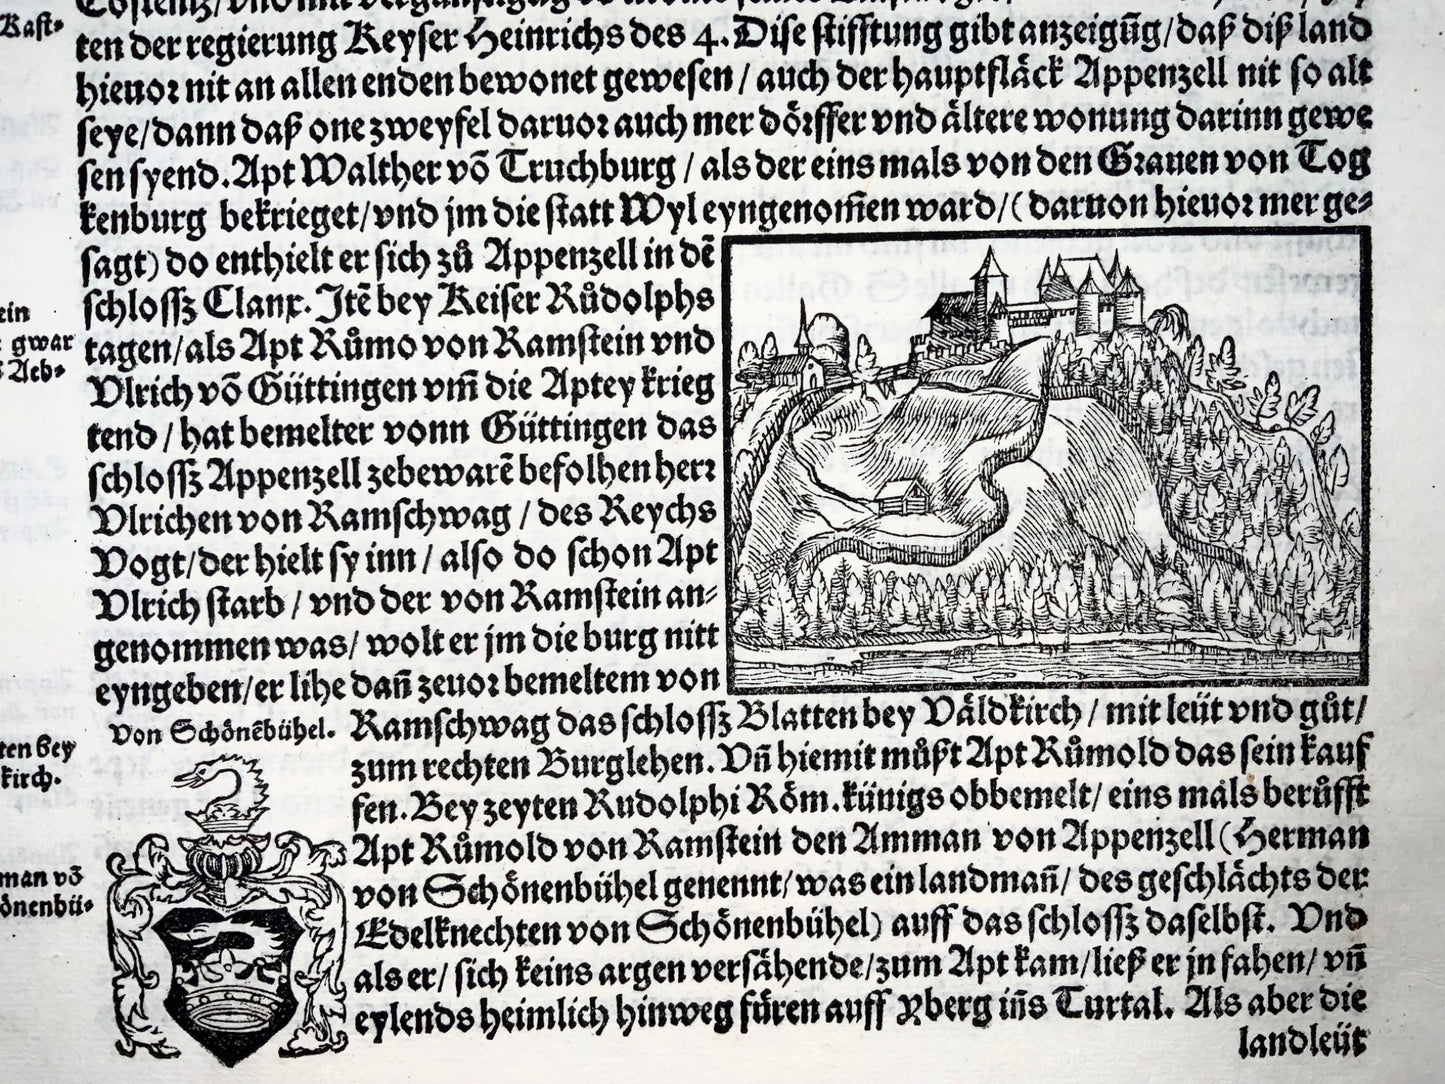 Costentz/vnd mit vergünstigung
ten der regierung Keyser Heinrichs des 4. Dise stifftung gibt anzeigūg/daß diß land
hieuor nit an allen enden bewonet gewesen/auch der hauptfläck Appenzell nit so alt
seye/dann daß one zweyfel daruor auch mer dörffer vnd ältere wonung darinn gewe
sen syend. Apt Walther võ Truchburg/als der eins mals von den Grauen von Tog
kenburg bekrieget/vnd jm die statt Wyl eyngenom̃en ward/(daruon hieuor mer ge-
sagt) do enthielt er sich zů Appenzell in dē
schlossz Clanx. Jtē bey Keiser Růdolphs
tagen/als Apt Růmo von Ramstein vnd
Vlrich võ Güttingen vm̃ die Aptey krieg
tend/hat bemelter vonn Güttingen das
schlossz Appenzell zebewarē befolhen herr
Vlrichen von Ramschwag/des Reychs
Vogt/der hielt sy inn/also do schon Apt
Vlrich starb/vnd der von Ramstein an-
genommen was/wolt er jm die burg nitt
eyngeben/er lihe dañ zeuor bemeltem von
Ramschwag das schlossz Blatten bey Väldkirch/mit leüt vnd gůt/
zum rechten Burglehen. Vñ hiemit můßt Apt Růmold das sein kauf
fen. Bey zeyten Rudolphi Röm. künigs obbemelt/eins mals berůfft
Apt Růmold von Ramstein den Amman von Appenzell (Herman
von Schönenbühel genennt/was ein landmañ/des geschlächts der
Edelknechten von Schönenbühel) auff das schlossz daselbst. Vnd
als er/sich keins argen versähende/zum Apt kam/ließ er jn fahen/vñ
eylends heimlich hinweg füren auff yberg iñs Turtal. Als aber die
landleüt
Von Schönēbühel.
Kast-
ein
gwar
Aeb-
ten bey
kirch.
man võ
önenbü-